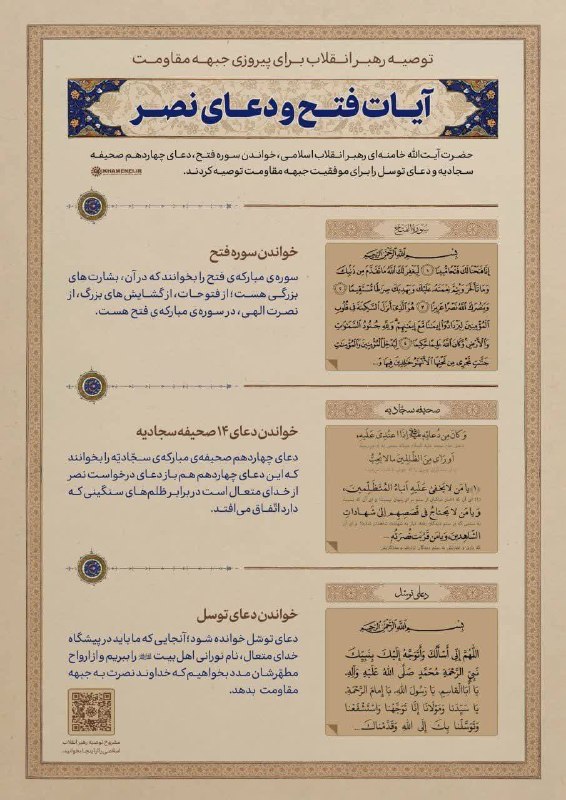 توصیه رهبر انقلاب برای پیروزی جبهه مقاومت
آیات فتح و دعای نصر
حضرت آیت‌الله خامنه‌ای رهبر انقلاب اسلامی، خواندن سوره فتح، دعای چهاردهم صحیفه
سجادیه و دعای توسل را برای موفقیت جبهه مقاومت توصیه کردند.
KHAMENEI.IR
سورة الفتح
بسم الله الرحمن الرحیم
خواندن سوره فتح
سوره‌ی مبارکه‌ی فتح را بخوانند که در آن، بشارت‌های
بزرگی هست؛ از فتوحات، از گشایش‌های بزرگ، از
نصرت الهی، در سوره‌ی مبارکه‌ی فتح هست.
إِنَّا فَتَحْنَا لَكَ فَتْحًا مُبِينًا ﴿١﴾ لِيَغْفِرَ لَكَ اللَّهُ مَا تَقَدَّمَ مِنْ ذَنْبِكَ
وَمَا تَأَخَّرَ وَيُتِمَّ نِعْمَتَهُ عَلَيْكَ وَيَهْدِيَكَ صِرَاطًا مُسْتَقِيمًا ﴿٢﴾
وَيَنْصُرَكَ اللَّهُ نَصْرًا عَزِيزًا ﴿٣﴾ هُوَ الَّذِي أَنْزَلَ السَّكِينَةَ فِي قُلُوبِ
الْمُؤْمِنِينَ لِيَزْدَادُوا إِيمَانًا مَعَ إِيمَانِهِمْ وَلِلَّهِ جُنُودُ السَّمَاوَاتِ
وَالْأَرْضِ وَكَانَ اللَّهُ عَلِيمًا حَكِيمًا ﴿٤﴾ لِيُدْخِلَ الْمُؤْمِنِينَ وَالْمُؤْمِنَاتِ
جَنَّاتٍ تَجْرِي مِنْ تَحْتِهَا الْأَنْهَارُ خَالِدِينَ فِيهَا وَ...
صحیفه سجّادیه
خواندن دعای ۱۴ صحیفه سجادیه
دعای چهاردهم صحیفه‌ی مبارکه‌ی سجّادیّه را بخوانند
که این دعای چهاردهم هم باز دعای درخواست نصر
از خدای متعال است در برابر ظلم‌های سنگینی که
دارد اتّفاق می‌افتد.
وَكَانَ مِنْ دُعَائِهِ إِذَا اعْتُدِيَ عَلَيْهِ،
أَوْ رَأَى مِنَ الظَّالِمِينَ مَا لَا يُحِبُّ
«۱» يَا مَنْ لَا يَخْفَى عَلَيْهِ أَنْبَاءُ الْمُتَظَلِّمِينَ،
وَيَا مَنْ لَا يَحْتَاجُ فِي قَصَصِهِمْ إِلَى شَهَادَاتِ
الشَّاهِدِينَ، وَيَا مَنْ قَرُبَتْ نُصْرَتُهُ ...
دعای توسّل
بسم الله الرحمن الرحیم
خواندن دعای توسل
دعای توسّل خوانده شود؛ آنجایی که ما باید در پیشگاه
خدای متعال، نام نورانی اهل بیت را ببریم و از ارواح
مطهّرشان مدد بخواهیم که خداوند نصرت به جبهه
مقاومت بدهد.
اللَّهُمَّ إِنِّي أَسْأَلُكَ وَأَتَوَجَّهُ إِلَيْكَ بِنَبِيِّكَ
نَبِيِّ الرَّحْمَةِ مُحَمَّدٍ صَلَّى اللَّهُ عَلَيْهِ وَآلِهِ.
يَا أَبَا الْقَاسِمِ، يَا رَسُولَ اللَّهِ، يَا إِمَامَ الرَّحْمَةِ،
يَا سَيِّدَنَا وَمَوْلَانَا إِنَّا تَوَجَّهْنَا وَاسْتَشْفَعْنَا
وَتَوَسَّلْنَا بِكَ إِلَى اللَّهِ وَقَدَّمْنَاكَ...
مشروح توصیه رهبر انقلاب
اسلامی را اینجا بخوانید.